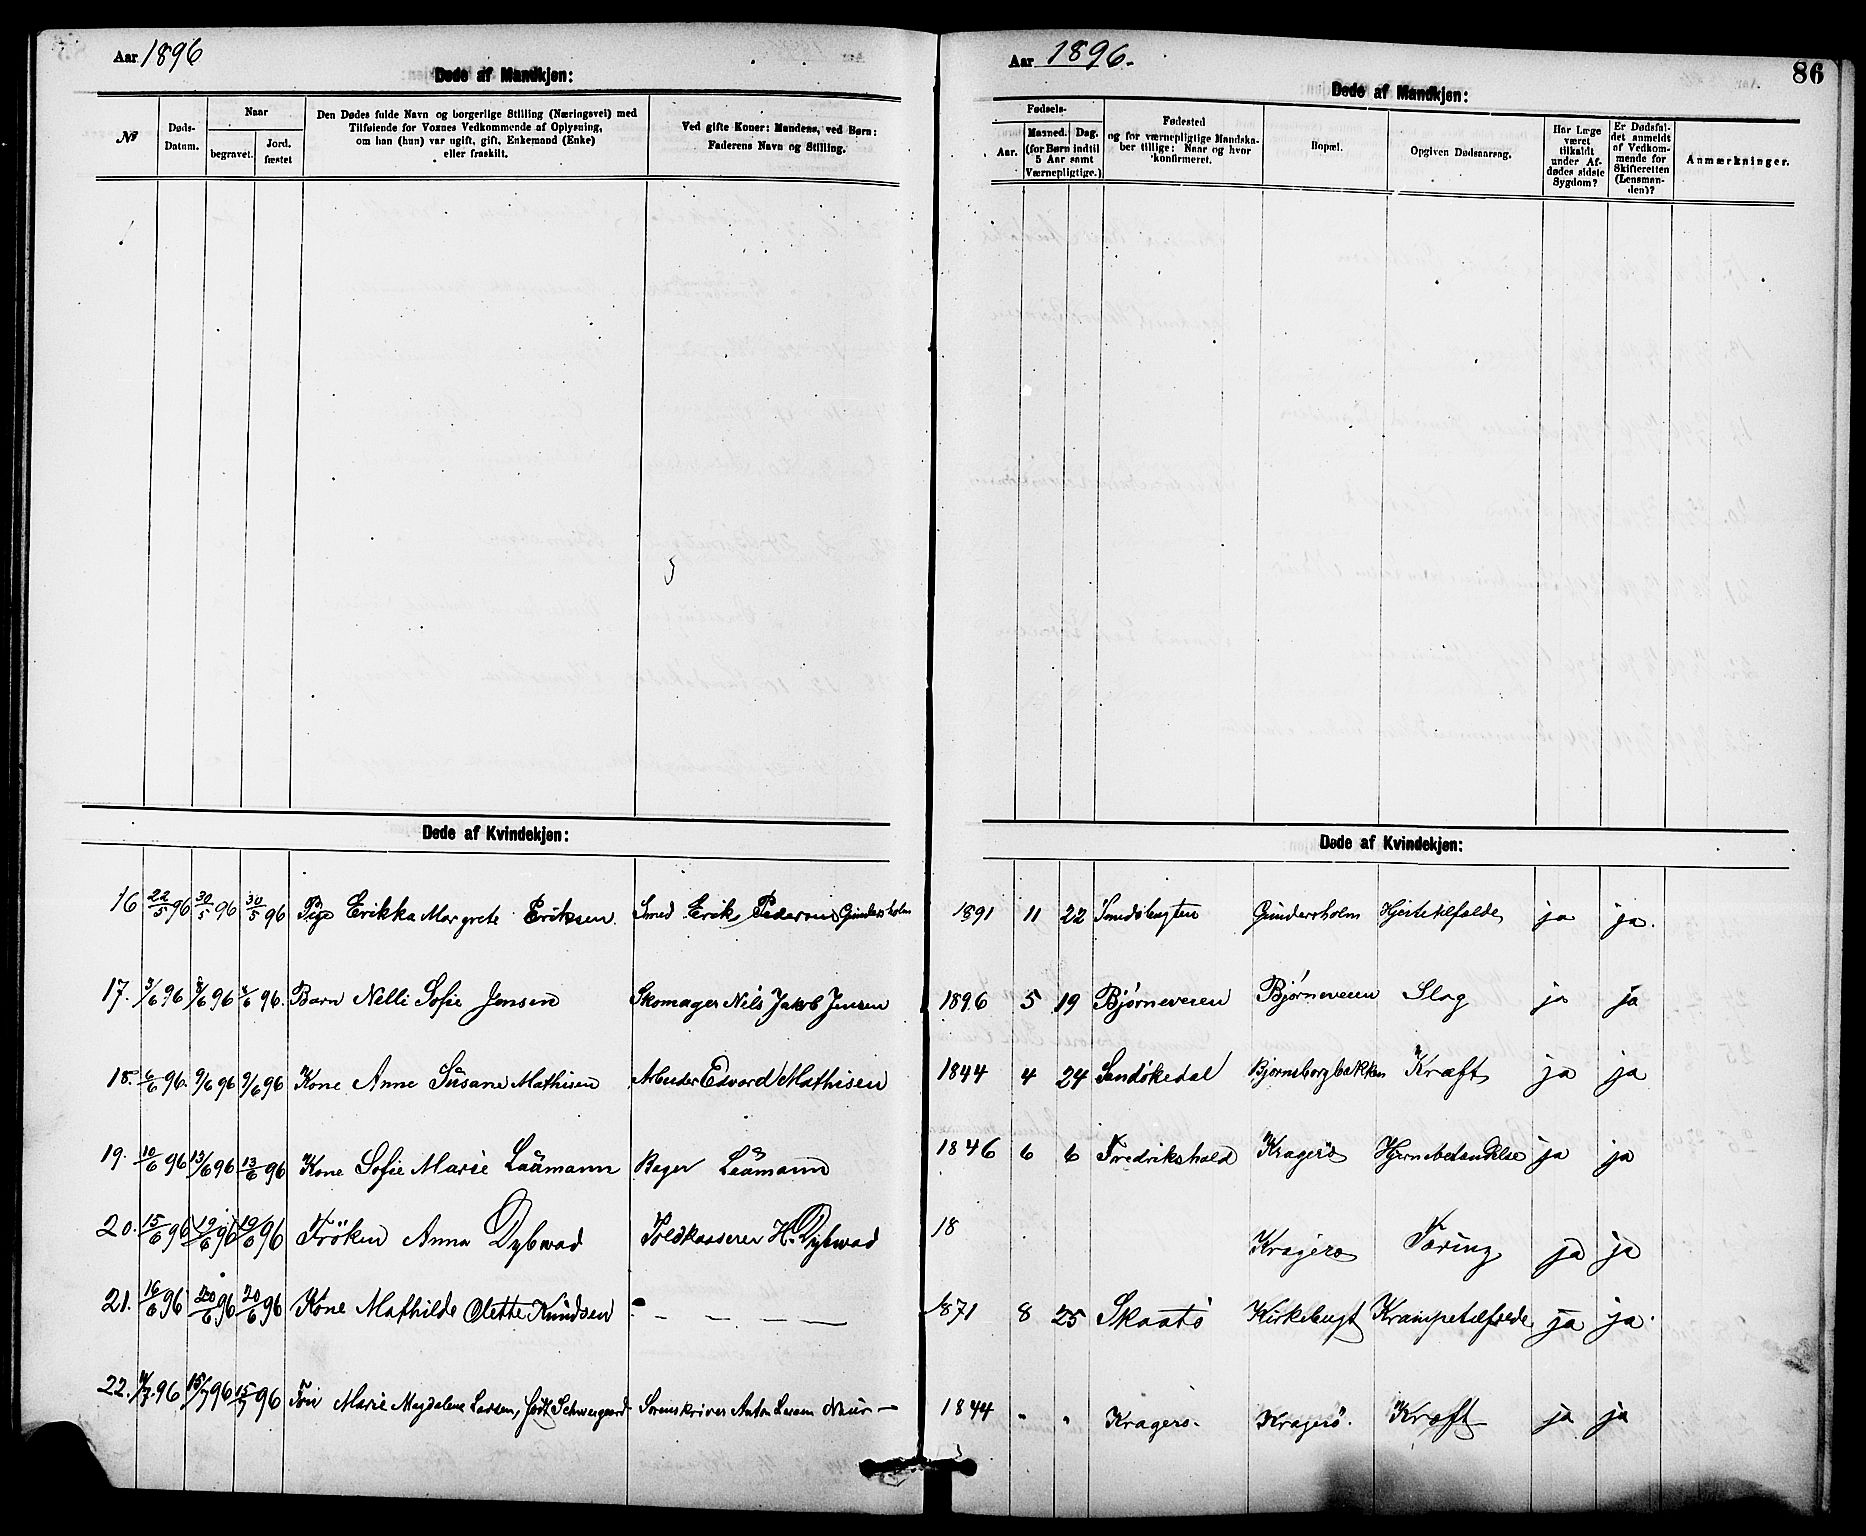 Aar 1896
Døde af Mandkjøn:
№
Døds-
Datum.
Naar
begravet.
Jord.
fæstet
Den Dødes fulde Navn og borgerlige Stilling (Næringsvei) med
Tilføiende for Voxnes Vedkommende af Oplysning,
om han (hun) var ugift, gift, Enkemand (Enke)
eller fraskilt.
Ved gifte Koner: Mandens, ved Børn:
Faderens Navn og Stilling.
Døde af Kvindekjøn:
16 22/5 96 30/5 96 30/5 96 Pige Erikka Margrete Eriksen Smed Erik Pedersen Gundersholm
17. 3/6 96 8/6 96 8/6 96. Barn Nelli Sofie Jensen Skomager Nils Jakob Jensen
18. 6/6 96. 9/6 96 9/6 96 Kone Anne Susane Mathisen Arbeider Edvard Mathisen
19. 10/6 96 13/6 96 13/6 96 Kone Sofie Marie Laumann Bager Laumann
20. 15/6 96 19/6 96 19/6 96 Fröken Anna Dybwad Toldkasserer H. Dybwad
21. 16/6 96 20/6 96 20/6 96 Kone Mathilde Olette Knudsen - — — — —
22. 11/7 96 15/7 96 15/7 96 Fru Marie Magdalene Larsen, født Schweigaard Sorenskriver Anton Larsen
Aar 1896.
86
Døde af Mandkjøn:
Fødsels-
Aar.
Maaned. Dag.
(for Børn indtil
5 Aar samt
Værnepligtige.)
Fødested
og for værnepligtige Mandska-
ber tillige: Naar og hvor
konfirmeret.
Bopæl.
Opgiven Dødsaarsag.
Har Læge
været
tilkaldt
under Af-
dødes sidste
Sygdom?
Er Dødsfal-
det anmeldt
af Vedkom-
mende for
Skifteretten
(Lensman-
den)?
Anmærkninger.
Døde af Kvindekjøn:
1891 11 22 Smedsbugten Gundersholm Hjertetilfælde ja ja.
1896 5 19 Bjørneveien Bjørneveien Slag ja ja
1844 4 24 Sandøkedal Bjørnsborgbakken Kræft ja ja
1846 6 6 Fredrikshald Kragerø Hjernebetændelse ja ja
18 Kragerø Tæring ja ja
1871 8 25 Skaatö Kirkebugt Krampetilfælde ja ja.
1844 " " Kragerø. Kragerö. Kræft ja ja